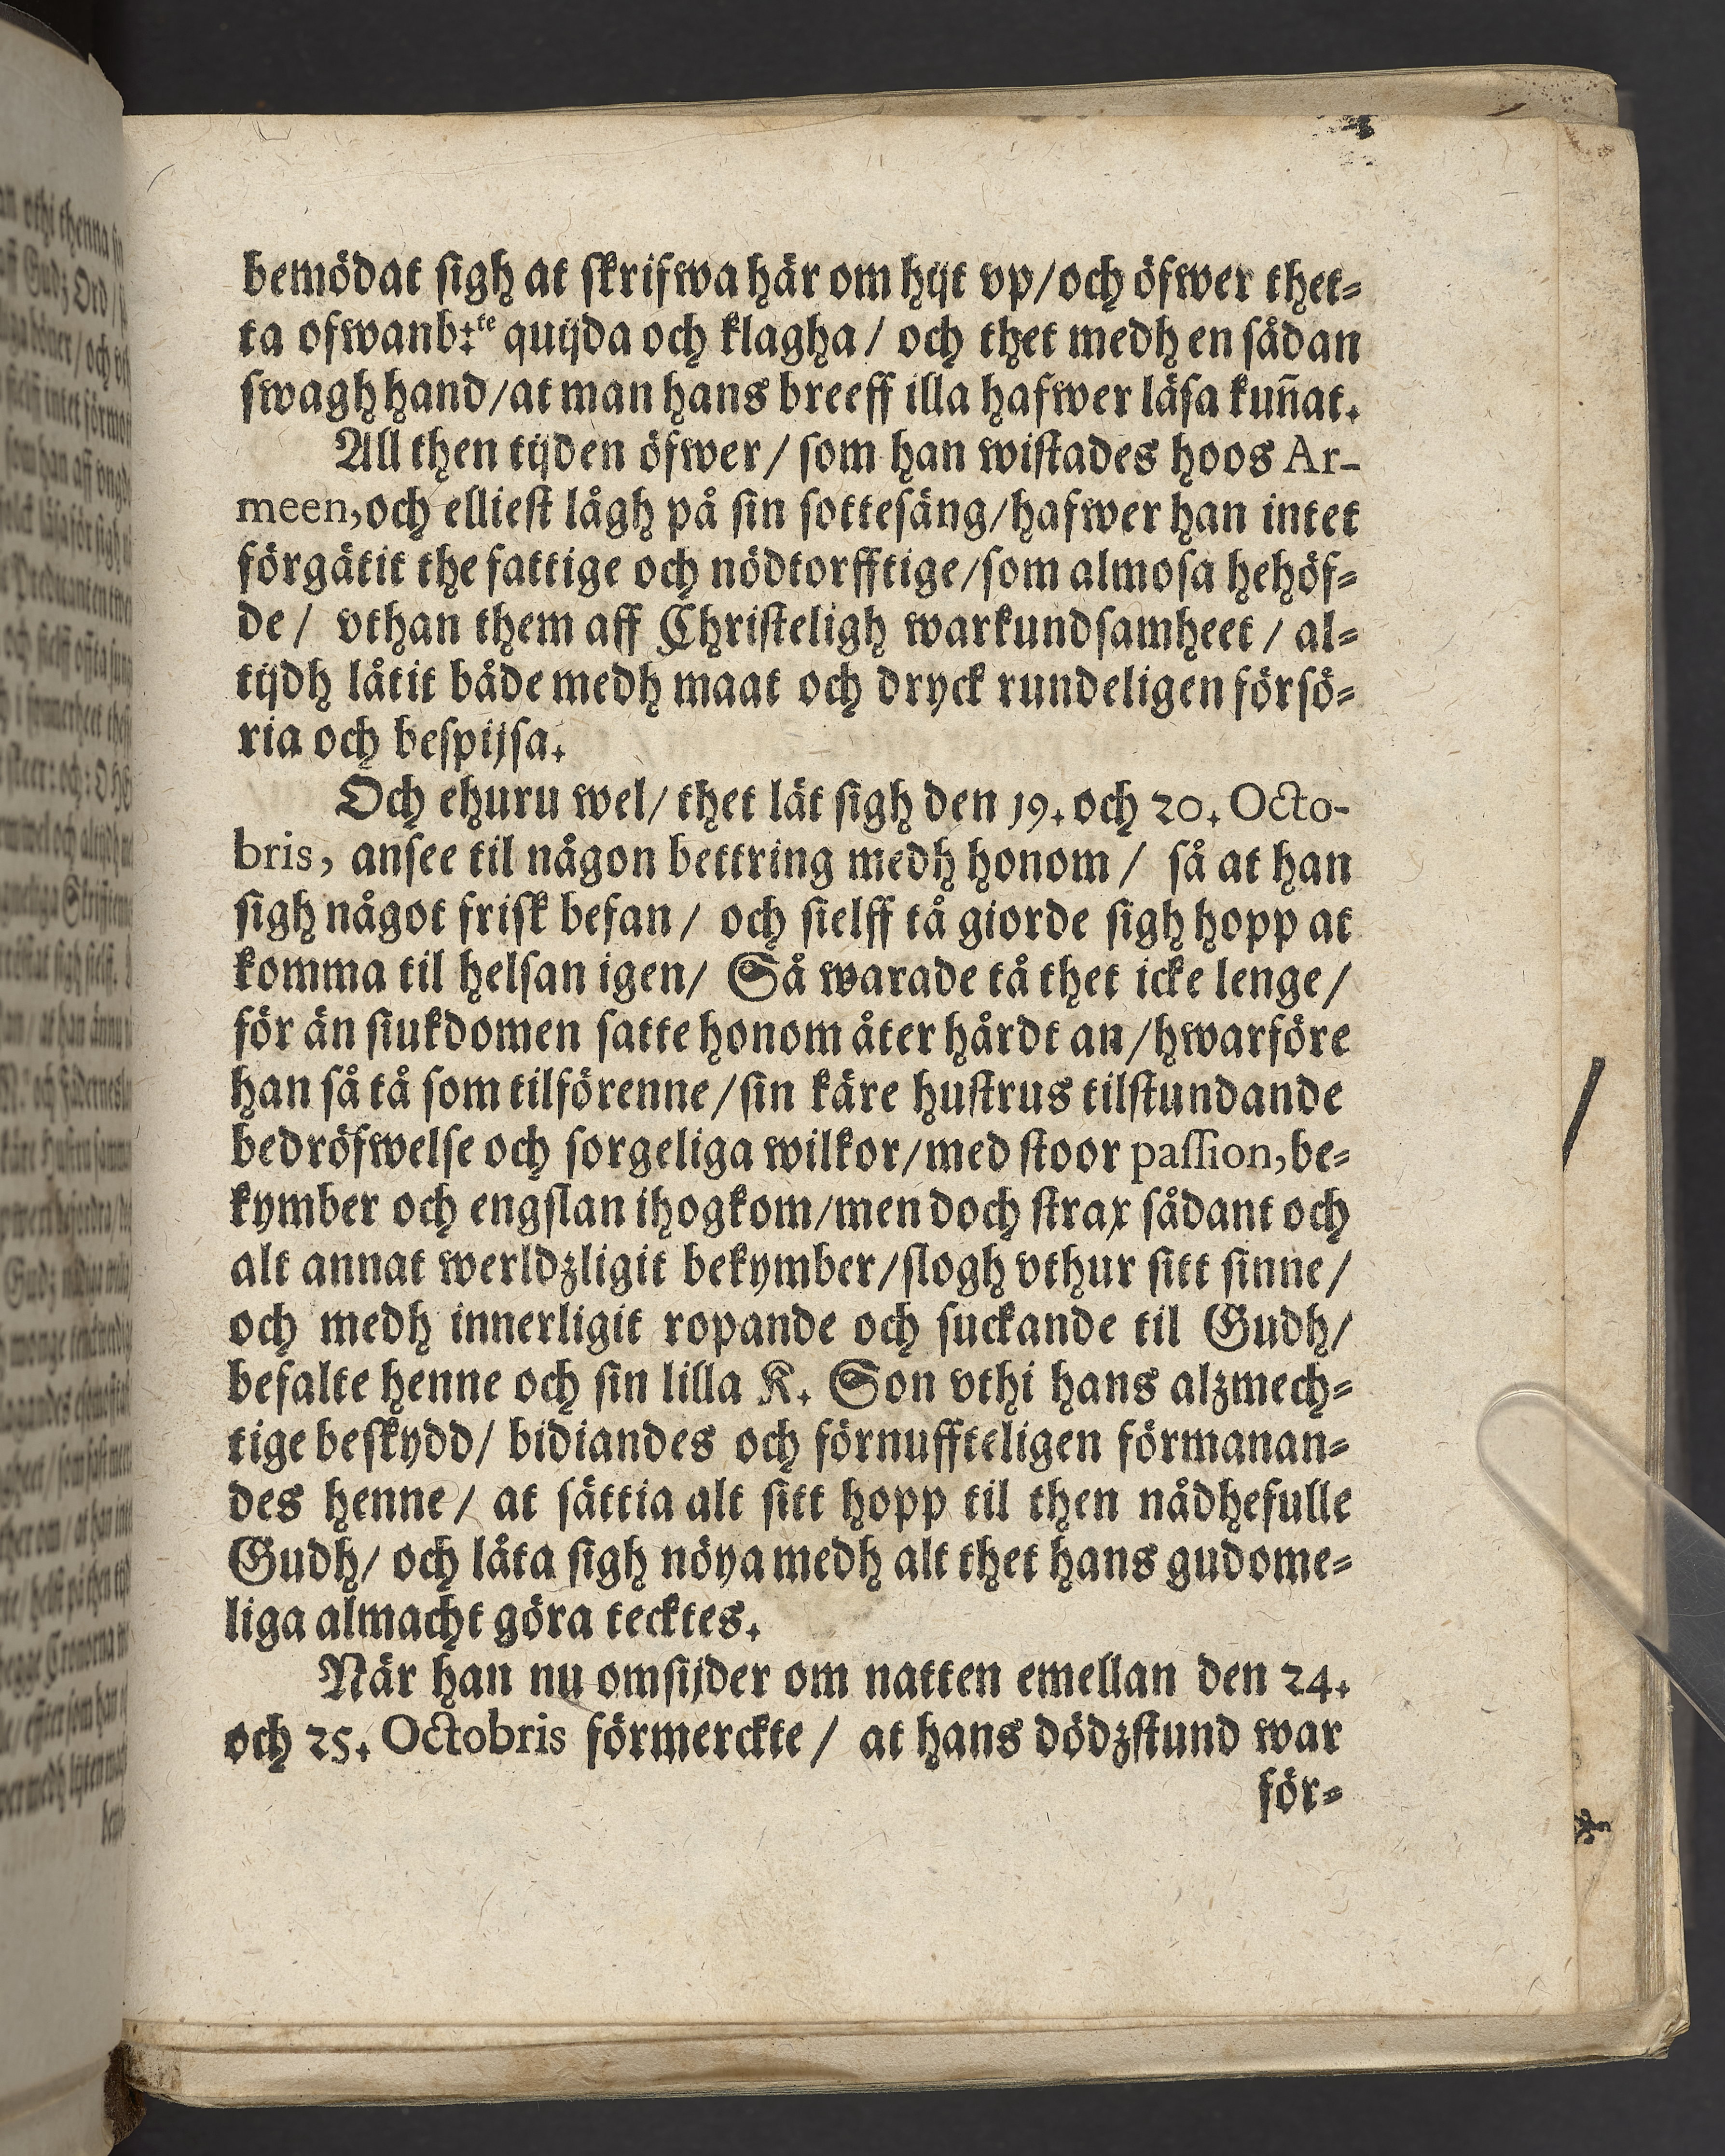 bemödat sigh at skrifwa här om hijt vp/och öfwer thet-
ta ofwanb:te quijda och klagha/ och thet medh en sådan
swagh hand/at man hans breeff illa hafwer läsa kun̄at.
All then tijden öfwer/ som han wistades hoos Ar-
meen, och elliest lågh på sin sottesäng/hafwer han intet
förgätit the fattige och nödtorfftige/som almosa hehöf-
de/ vthan them aff Christeligh warkundsamheet/ al-
tijdh låtit både medh maat och dryck rundeligen försö-
ria och bespijsa.
Och ehuru wel/ thet lät sigh den 19. och 20. Octo-
bris, ansee til någon bettring medh honom/ så at han
sigh något frisk befan/ och sielff tå giorde sigh hopp at
komma til helsan igen/ Så warade tå thet icke lenge/
för än siukdomen satte honom åter hårdt an/hwarföre
han så tå som tilförenne/sin käre hustrus tilstundande
bedröfwelse och sorgeliga wilkor/med stoor passion, be-
kymber och engslan ihogkom/men doch strax sådant och
alt annat werldzligit bekymber/slogh vthur sitt sinne/
och medh innerligit ropande och suckande til Gudh/
befalte henne och sin lilla K. Son vthi hans alzmech-
tige beskydd/ bidiandes och förnuffteligen förmanan-
des henne/ at sättia alt sitt hopp til then nådhefulle
Gudh/ och låta sigh nöya medh alt thet hans gudome-
liga almacht göra tecktes.
När han nu omsijder om natten emellan den 24.
och 25. Octobris förmerckte/ at hans dödzstund war
för-